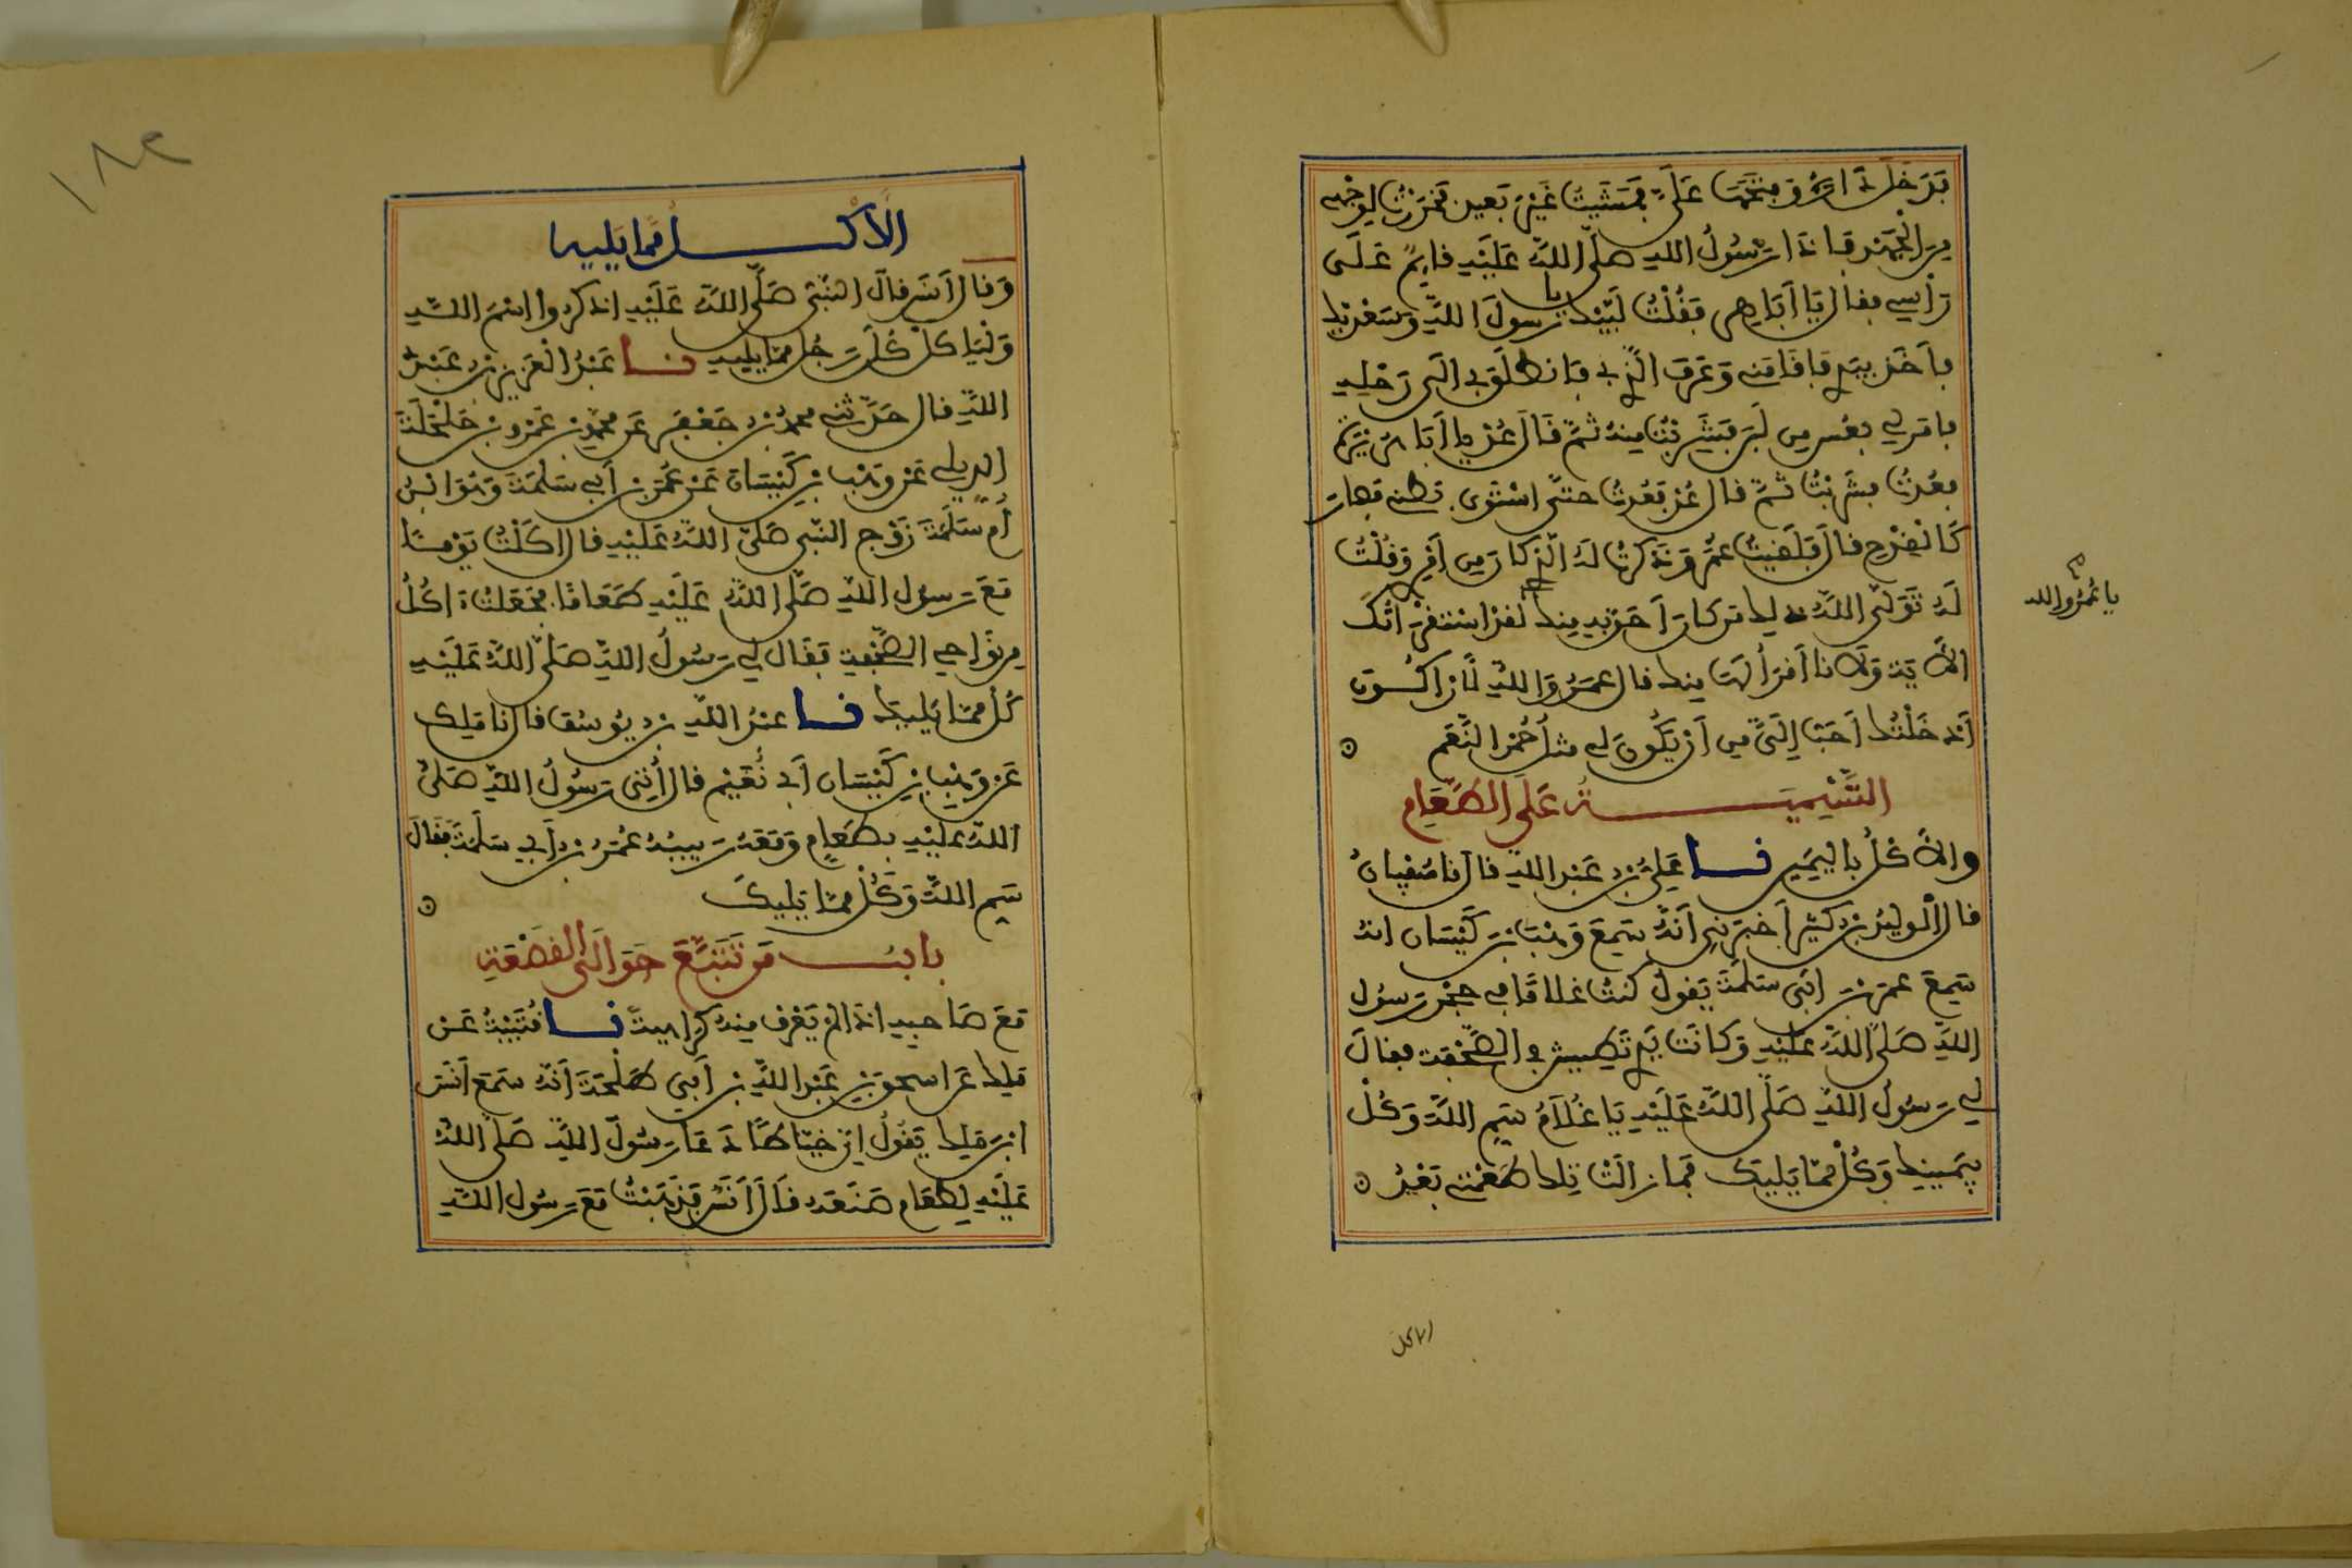 فَدَخَلَ دَارَهُ وَفَتَحَهَا عَلَيَّ فَمَشَيْتُ غَيْرَ بَعِيدٍ فَخَرَرْتُ لِوَجْهِي
مِنَ الْجَهْدِ فَإِذَا رَسُولُ اللهِ صَلَّى اللهُ عَلَيْهِ قَائِمٌ عَلَى
رَأْسِي فقال يَا أَبَا هِرٍّ فَقُلْتُ لَبَّيْكَ يا رَسُولَ اللهِ وَسَعْدَيْكَ
فأَخَذَ بِيَدِي فَأَقَامَنِي وَعَرَفَ الَّذِي بِي فَانْطَلَقَ بِي إِلَى رَحْلِهِ
فأمر لي بعُسٍّ من لَبَنٍ فَشَرِبْتُ مِنْهُ ثُمَّ قَالَ عُدْ يا أَبَا هُرَيْرَةَ
فعُدْتُ فشَرِبْتُ ثُمَّ قال عُدْ فَعُدْتُ حتَّى اسْتَوَى بطني فصار
كَالْقِدْحِ قال فَلَقِيتُ عُمَرَ وَذَكَرْتُ لَهُ الَّذِي كان مِن أَمْرِي وَقُلْتُ
لَهُ تَوَلَّى اللهُ ذلك من كان أَحَقَّ به منك لقد استقرأتُك
الآيَةَ وَلَأَنَا أَقْرَأُ لَهَا مِنك قال عمرُ وَاللهِ لَأَنْ أَكُونَ
أَدْخَلْتُكَ أَحَبُّ إِلَيَّ مِن أَنْ يَكُونَ لي مثلُ حُمْرِ النَّعَمِ
يا عُمَرُ والله
التَّسْمِيَةُ عَلَى الطَّعَامِ
والأَكْلُ باليمين نا عَلِيُّ بن عَبْدِ الله قال نا سُفْيَانُ
قال الْوَلِيدُ بن كَثِيرٍ أَخْبَرَنِي أَنَّهُ سَمِعَ وَهْبَ بْنَ كَيْسَانَ انه
سَمِعَ عمرَ بْنَ أَبِي سَلَمَةَ يَقُولُ كُنْتُ غلاما في حَجْرِ رَسُولِ
اللهِ صَلَّى اللهُ عليْهِ وَكَانَتْ يَدِي تَطِيشُ في الصَّحْفَةِ فقالَ
لِي رَسُولُ اللهِ صَلَّى اللهُ عَلَيْهِ يَا غُلَامُ سَمِّ اللهَ وَكُلْ
بِيَمِينِكَ وَكُلْ مِمَّا يَلِيكَ فَمَا زَالَتْ تِلْكَ طِعْمَتِي بَعْدُ
الاكل
١٨٢
الأَكْلُ مِمَّا يَلِيهِ
وَقال أَنَسٌ قالَ النَّبِيُّ صَلَّى اللهُ عَلَيْهِ اذكروا اسْمَ اللهِ
وَلْيَأْكُلْ كُلُّ رَجُلٍ مِمَّا يَلِيهِ نا عَبْدُ الْعَزِيزِ بن عَبْدِ
اللهِ قال حَدَّثَنِي محمدُ بن جَعْفَرٍ عَن محمدِ بن عَمْرِو بن حَلْحَلَةَ
الديلي عَنْ وَهْبِ بْنِ كَيْسَانَ عَنْ عُمَرَ بْنِ أَبِي سَلَمَةَ وَهُوَ ابْنُ
أُمِّ سَلَمَةَ زَوْجِ النَّبِي صَلَّى اللهُ عَلَيْهِ قال أَكَلْتُ يَوْمًا
مَعَ رَسُولِ اللهِ صَلَّى اللهُ عَلَيْهِ طَعَامًا فَجَعَلْتُ آكُلُ
مِن نَوَاحِي الصَّحْفَةِ فَقَالَ لِي رَسُولُ اللهِ صَلَّى اللهُ عَلَيْهِ
كُلْ مِمَّا يَلِيكَ نا عبْدُ اللهِ بن يُوسُفَ قال أنا مَلِكٌ
عَنْ وَهْبِ بْنِ كَيْسَانَ أَبِي نُعَيْمٍ قال أُتِيَ رَسُولُ اللهِ صَلَّى
اللهُ عَلَيْهِ بِطَعَامٍ وَمَعَهُ رَبِيبُهُ عُمَرُ بن أَبِي سَلَمَةَ فَقَالَ
سَمِّ اللهَ وَكُلْ مِمَّا يَلِيكَ
بابُ مَن تَتَبَّعَ حَوَالَي الْقَصْعَةِ
مَعَ صَاحِبِهِ إِذَا لَمْ يَعْرِفْ مِنْهُ كَرَاهِيَةً نا قُتَيْبَةُ عَنْ
مَلِكٍ عَن اسحق بْنِ عَبْدِ اللهِ بن أَبِي طَلْحَةَ أَنَّهُ سَمِعَ أَنَسَ
ابْنَ مَلِكٍ يَقُولُ إِنَّ خَيَّاطًا دَعَا رَسُولَ اللهِ صَلَّى اللهُ
عَلَيْهِ لِطَعَامٍ صَنَعَهُ قَالَ أَنَسٌ فَذَهَبْتُ مَعَ رَسُولِ اللهِ